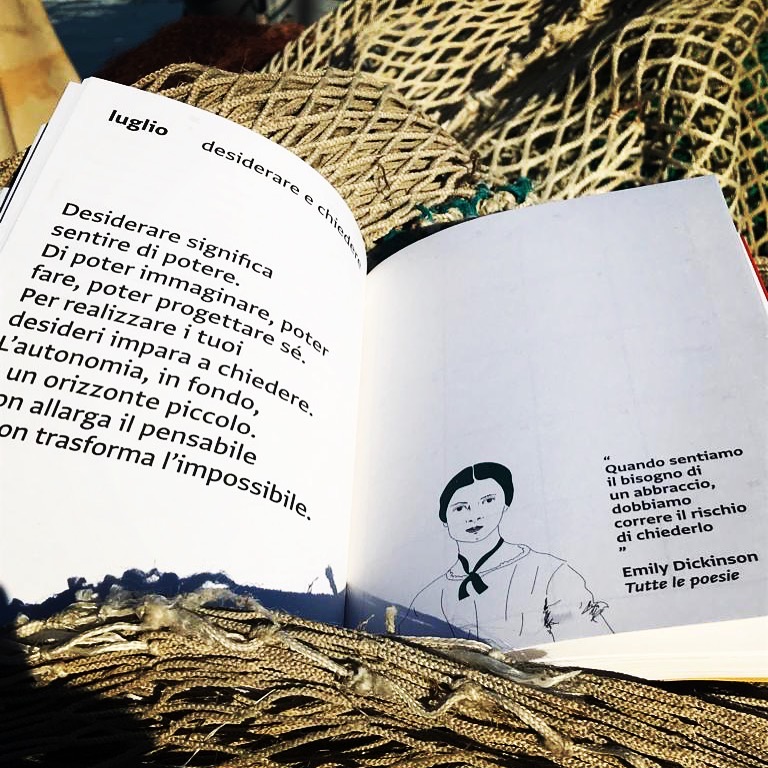 luglio
desiderare e chiedere
Desiderare significa
sentire di potere.
Di poter immaginare, poter
fare, poter progettare sé.
Per realizzare i tuoi
desideri impara a chiedere.
L'autonomia, in fondo,
un orizzonte piccolo.
on allarga il pensabile
on trasforma l'impossibile.
“
Quando sentiamo
il bisogno di
un abbraccio,
dobbiamo
correre il rischio
di chiederlo
”
Emily Dickinson
Tutte le poesie